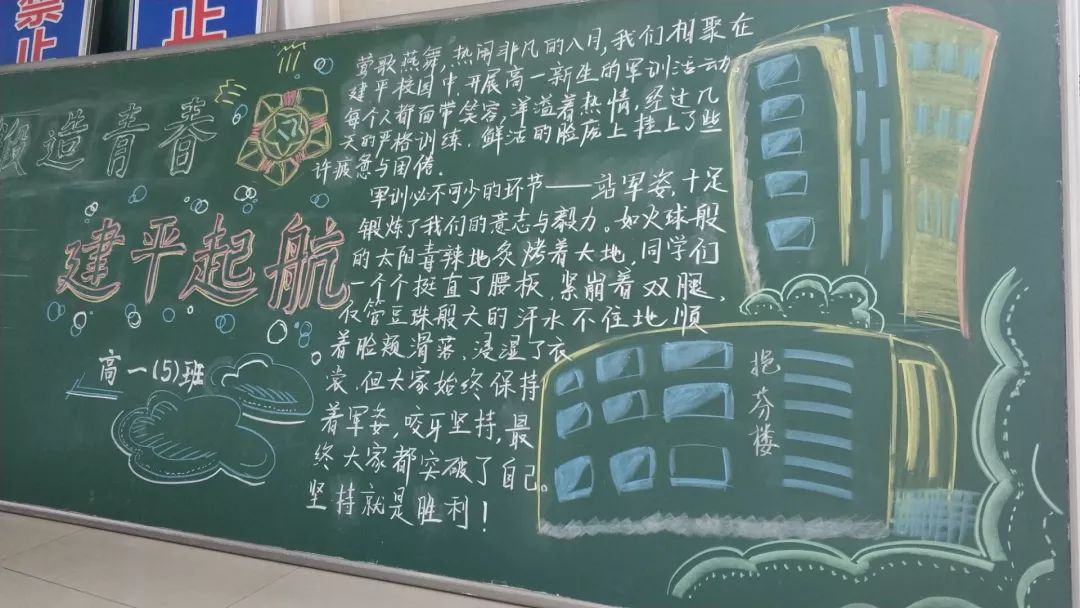 禁止
止
锻造青春
建平起航
高一(5)班
莺歌燕舞,热闹非凡的八月,我们相聚在
建平校园中,开展高一新生的军训活动。
每个人都面带笑容,洋溢着热情,经过几
天的严格训练,鲜活的脸庞上挂上了些
许疲惫与困倦.
军训必不可少的环节——站军姿,十足
锻炼了我们的意志与毅力。如火球般
的太阳毒辣地炙烤着大地,同学们
一个个挺直了腰板,紧崩着双腿,
尽管豆珠般大的汗水不住地顺
着脸颊滑落,浸湿了衣
裳,但大家始终保持
着军姿,咬牙坚持,最
终大家都突破了自己。
坚持就是胜利!
挹芬楼